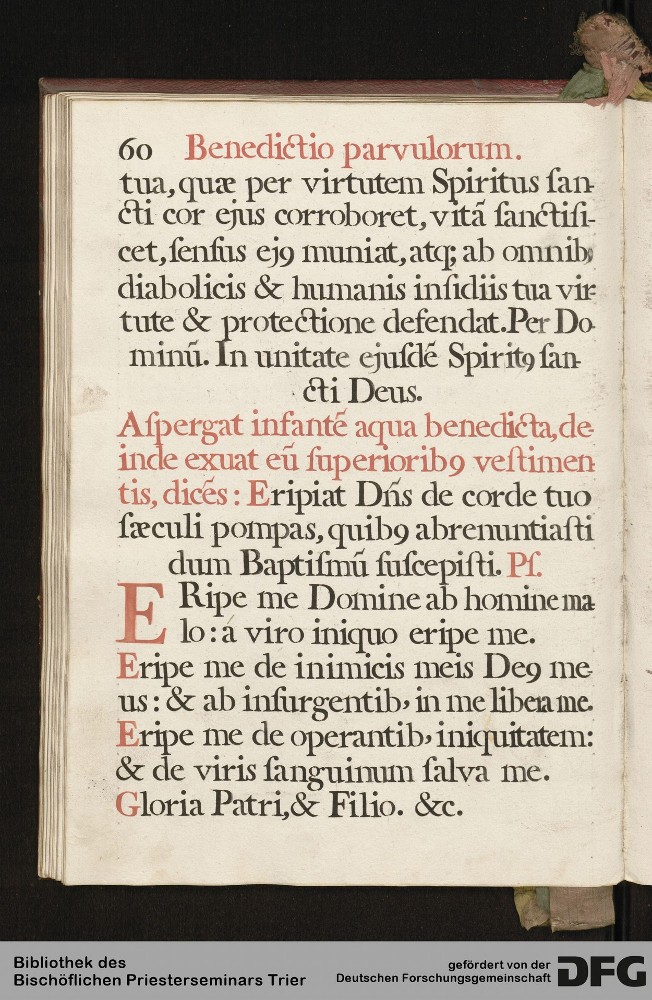 60 Benedictio parvulorum.
tua, quæ per virtutem Spiritus ſan-
cti cor ejus corroboret, vitã ſanctifi-
cet, ſenſus ejꝰ muniat, atq; ab omnib9
diabolicis & humanis inſidiis tua vir-
tute & protectione defendat. Per Do-
minũ. In unitate ejuſdẽ Spiritꝰ ſan-
cti Deus.
Aſpergat infantẽ aqua benedicta, de-
inde exuat eũ ſuperioribꝰ veſtimen-
tis, dicẽs: Eripiat Dñs de corde tuo
ſæculi pompas, quibꝰ abrenuntiaſti
dum Baptiſmũ ſuſcepiſti. Pſ.
ERipe me Domine ab homine ma-
lo: á viro iniquo eripe me.
Eripe me de inimicis meis Deꝰ me-
us: & ab inſurgentib, in me libera me.
Eripe me de operantib, iniquitatem:
& de viris ſanguinum ſalva me.
Gloria Patri, & Filio. &c.
Bibliothek des
Bischöflichen Priesterseminars Trier
gefördert von der
Deutschen Forschungsgemeinschaft
DFG